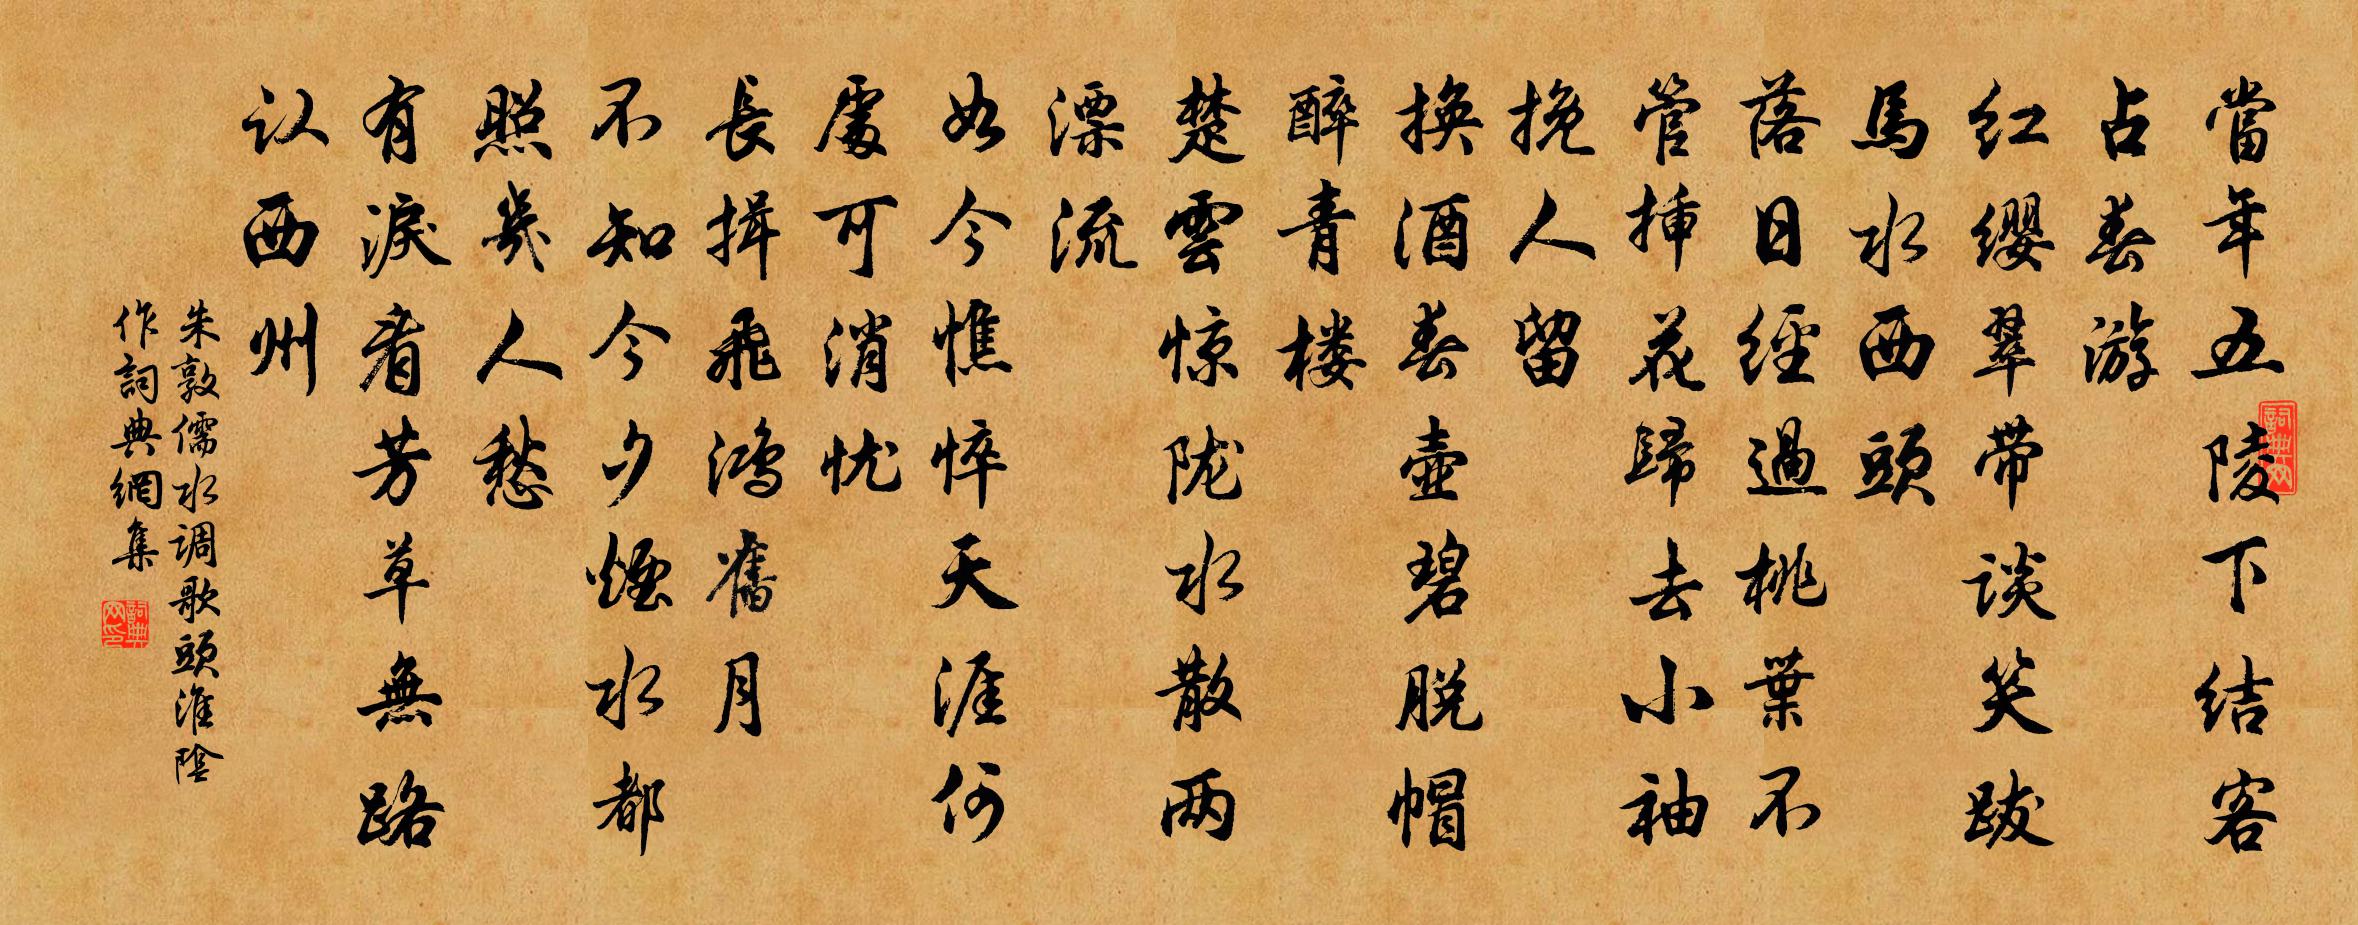 當年五陵下结客
占春游
红缨翠带谈笑跋
馬水西頭
落日經過桃葉不
管挿花歸去小袖
挽人留
換酒春壺碧脱帽
醉青楼
楚雲惊陇水散两
漂流
如今憔悴天涯何
處可消忧
長揖飛鸿舊月
不知今夕煙水都
照幾人愁
有淚看芳草無路
认西州
朱敦儒水调歌頭淮陰
作詞典網集
詞典网
詞典网印